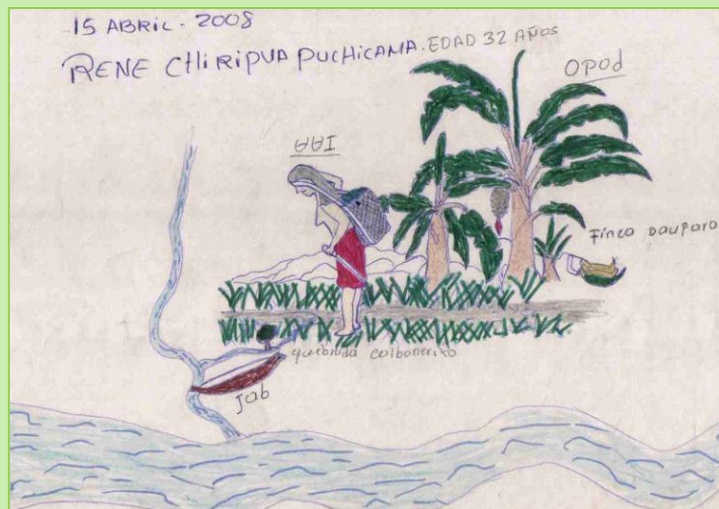 15 ABRIL. 2008
RENE CHIRIPUA PUCHICAMA. EDAD 32 AÑOS
OPOd
ɄɄI
Finca Dauparo
quebrada calbonerito
Jab